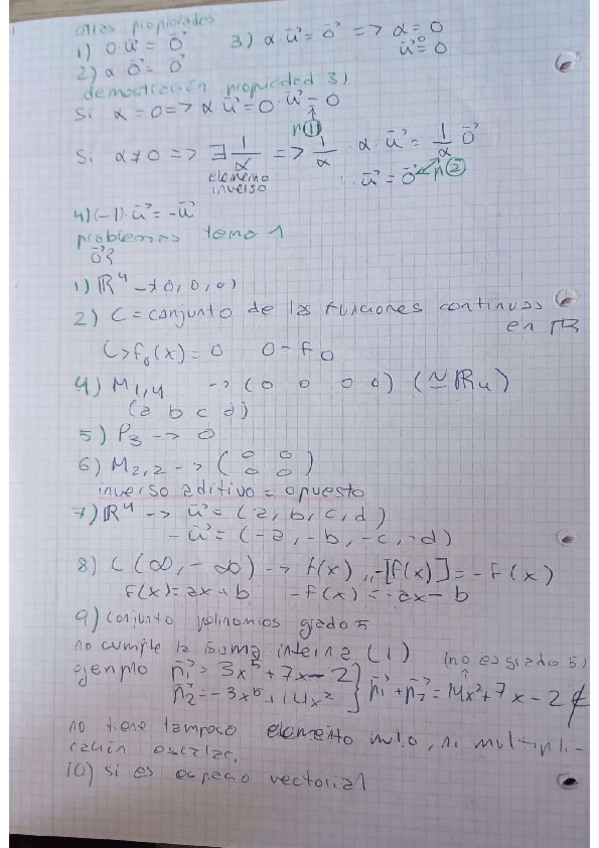 otras propiedades
1) 0·ū = 0̄ 3) α ū = 0̄ => α = 0
ū = 0
2) α 0̄ = 0̄
demostración propiedad 3)
Si α = 0 => α ū = 0 · ū = 0
p(1)
Si α ≠ 0 => ∃ 1/α => 1/α · α · ū = 1/α 0̄
elemento
inverso
ū = 0̄ p(2)
4) (-1)·ū = -ū
problemas tema 1
0̄?
1) ℝ4 → (0, 0, 0)
2) C = conjunto de las funciones continuas
en ℝ
C> f₀(x) = 0 0 - f₀
4) M1,4 --> (0 0 0 0) (≃ ℝ4)
(a b c d)
5) P3 --> 0
6) M2,2 --> (0 0
0 0)
inverso aditivo = opuesto
7) ℝ4 --> ū = (a, b, c, d)
-ū = (-a, -b, -c, -d)
8) C (∞, -∞) --> f(x) ,, -[f(x)] = -f(x)
f(x) = ax + b -f(x) = -ax - b
9) conjunto polinomios grado 5
no cumple la suma interna (1) (no es grado 5)
ejemplo p1 = 3x5 + 7x - 2
p2 = -3x5 + 14x2 } p1 + p2 = 14x2 + 7x - 2 ∉
no tiene tampoco elemento nulo, ni multipli-
cación escalar.
10) si es espacio vectorial